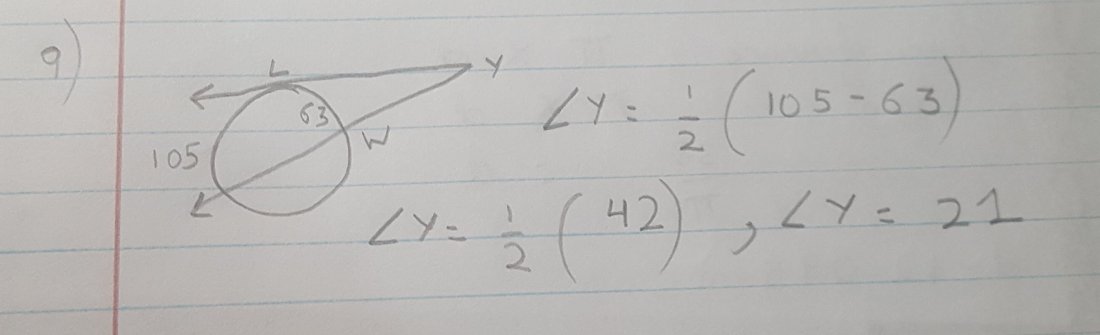 9)
L Y
63
105 W
∠Y = 1/2 (105 - 63)
∠Y = 1/2 (42) , ∠Y = 21